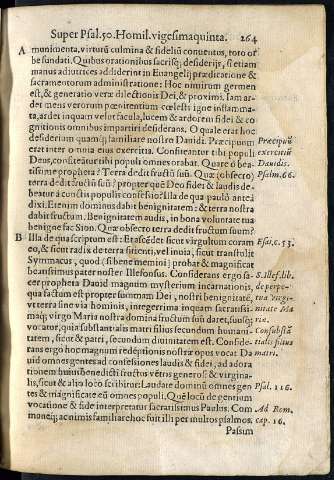 Super Psal. 50. Homil. vigesimaquinta. 264
A munimenta, virtutū culmina & fideliū conuentus, toto orbe
fundati. Quibus orationibus sacrisq; desiderijs, si etiam
manus adiutrices addiderint in Euangelij prædicatione &
sacramentorum administratione: Hoc nimirum germen
est, & generatio veræ dilectionis Dei, & proximi. Iam ardet
mens verorum pœnitentium cœlesti igne inflammata,
ardet inquam velut facula, lucem & ardorem fidei & cognitionis
omnibus impartiri desiderans. O quale erat hoc
desiderium quamq; familiare nostro Dauidi. Præcipuum Præcipuū
erat inter omnia eius exercitia. Confiteantur tibi populi exercitiū
Deus, confiteātur tibi populi omnes orabat. Quare ô beatissime Dauidis.
propheta? Terra dedit fructū suū. Quæ (obsecro) Psalm. 66.
terra dedit fructū suū? propter quē Deo fidei & laudis debeatur
à cunctis populis confessio? Illa de qua paulò anteà
dixi. Etenim dominus dabit benignitatem: & terra nostra
dabit fructum. Benignitatem audis, in bona voluntate tua
benignè fac Sion. Quæ obsecro terra dedit fructum suum?
B Illa de qua scriptum est: Et ascēdet sicut virgultum coram Esai. c. 53.
eo, & sicut radix de terra sitienti, vel inuia, sicut transtulit
Symmacus, quod (si bene memini) probat & magnificat
beatissimus pater noster Illefonsus. Considerans ergo sacer S. Illef. lib.
propheta Dauid magnum mysterium incarnationis, de perpe-
qua factum est propter summam Dei, nostri benignitatē, tua Virgi-
vt terra sine via hominis, integerrima inquam sacratissimaq; nitate Ma
virgo Maria nostra domina fructum suū daret, suusq; riæ.
vocatur, quia substantialis matri filius secundum humanitatem, Consubstā
sicut & patri, secundum diuinitatem est. Considerans tialis filius
ergo hoc magnum redēptionis nostræ opus vocat Dauid matri.
omnes gentes ad confessiones laudis & fidei, ad adorationem
huius benedicti fructus vētris generosi & virginalis,
sicut & alio loco scribitur: Laudate dominū omnes gentes Psal. 116.
& magnificate eū omnes populi. Quē locū de gentium
vocatione & fide interpretatur sacratissimus Paulus. Commoneiq; Ad Rom.
animis familiare hoc suit illi per multos psalmos. cap. 16.
Passum